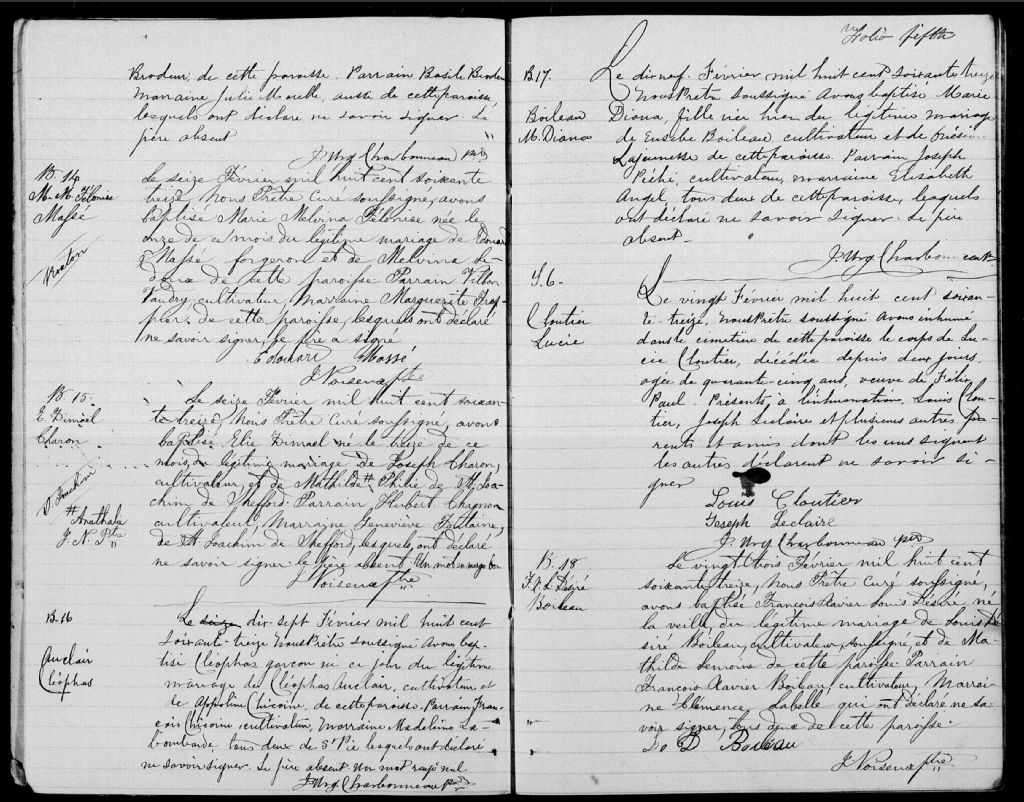 Brodeur, de cette paroisse. Parrain Basile Brodeur
marraine Julie Morelle, aussi de cette paroisse,
lesquels ont déclaré ne savoir signer. Le
père absent
J. Urg. Charbonneau ptre
B. 14
M. M. Félonise
Masse
Le seize Février mil huit cent soixante
treize Nous Prêtre Curé soussigné, avons
baptisé Marie Melvina Félonise née le
onze de ce mois du légitime mariage de Edouard
Masse forgeron et de Melvina
de cette paroisse Parrain
Vaudry cultivateur, Marraine Marguerite
de cette paroisse, lesquels ont déclaré
ne savoir signer, le père a signé
Edouard Massé
J Noiseux ptre
B. 15.
E. Zimaël
Charon
St Joachim
Anathale
J. N. Ptre
Le seize Février mil huit cent soixan-
te treize, Nous Prêtre Curé soussigné, avons
baptisé Elie Zimael né le treize de ce
mois, du légitime mariage De Joseph Charon,
cultivateur, et de Mathilde Philie de St. Joa-
chim de Shefford Parrain Hubert Chagnon
cultivateur, Marraine Geneviève Fontaine,
de St Joachim de Shefford, lesquels, ont déclaré
ne savoir signer le père absent. Un mot en marge bon
J Noiseux ptre
B. 16
Auclair
Cléophas
Le seize dix-sept Février mil huit cent
soixante-treize Nous Prêtre soussigné Avons bap-
tisé Cléophas garçon né ce jour du légitime
mariage de Cléophas Auclair, cultivateur et
de Appoline Chicoine, de cette paroisse. Parrain Fran-
çois Chicoine, cultivateur, marraine Madeleine La-
bombarde, tous deux de St Pie lesquels ont déclaré
ne savoir signer. Le père absent Un mot rayé nul
J. Urg. Charbonneau ptre
Folio fifth
B. 17.
Boileau
M. Diana
Le dix neuf Février mil huit cent soixante treize
Nous Prêtre soussigné Avons baptisé Marie
Diana, fille née hier du légitime mariage
de Eusèbe Boileau, cultivateur et de
Lajeunesse de cette paroisse. Parrain Joseph
Piché, cultivateur, marraine Elisabeth
Angel, tous deux de cette paroisse, lesquels
ont déclaré ne savoir signer. Le père
absent.
J. Urg. Charbonneau ptre
S. 6.
Cloutier
Lucie
Le vingt Février mil huit cent soixan-
te-treize, Nous Prêtre soussigné Avons inhumé
dans le cimetière de cette paroisse le corps de Lu-
cie Cloutier, décédée depuis deux jours,
agée de quarante-cinq ans, veuve de Félix
Paul. Présents à l'inhumation, Louis Clou-
tier, Joseph Leclaire et plusieurs autres pa-
rents et amis dont les uns signent
les autres déclarent ne savoir si-
gner
Louis Cloutier
Joseph Leclaire
J. Urg. Charbonneau ptre
B. 18
F. X. L. Désiré
Boileau
Le vingt trois Février mil huit cent
soixante treize, Nous Prêtre Curé soussigné,
avons baptisé François Xavier Louis Désiré né
la veille du légitime mariage de Louis Dé-
siré Boileau, cultivateur, soussigné, et de Ma-
thilde Lemoine de cette paroisse Parrain
François Xavier Boileau, cultivateur, Marrai-
ne Clémence Labelle qui ont Déclaré ne sa-
voir signer, tous deux de cette paroisse.
Lo D Boileau
J Noiseux ptre